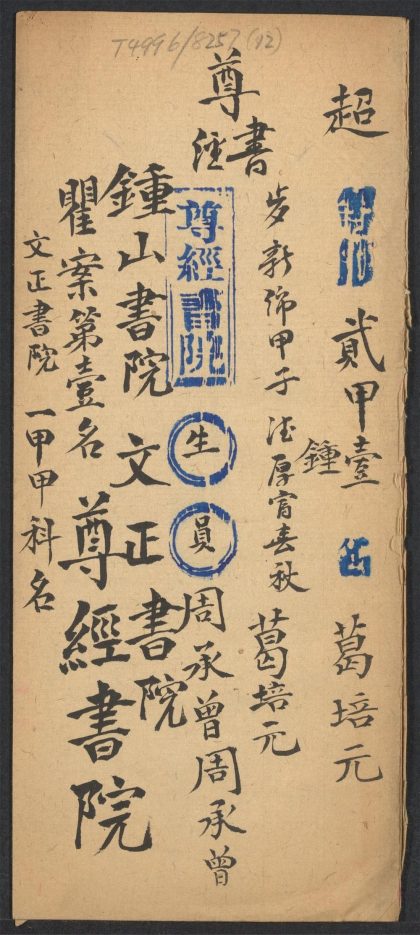 T4996/8257 (12)
超等第貳甲壹名葛培元
鍾
尊經書
歩新躋甲子 法厚富春秋 葛培元
尊經書院 生員 周承曾周承曾
鍾山書院 文正書院
瞿案第壹名 尊經書院
文正書院 一甲甲科名